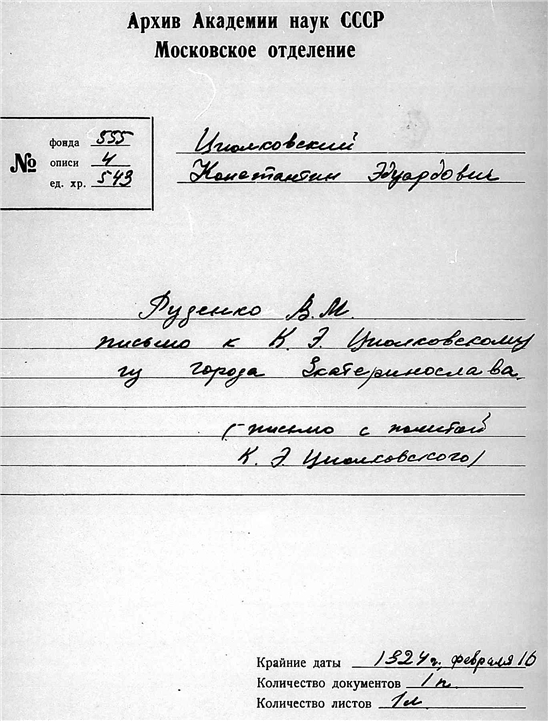 Архив Академии наук СССР
Московское отделение
№
фонда 555
описи 4
ед. хр. 543
Циолковский
Константин Эдуардович
Руденко В.М.
письмо к К. Э. Циолковскому
из города Екатеринослава.
(письмо с пометой
К. Э. Циолковского)
Крайние даты 1924 г., февраля 16
Количество документов 1 п.
Количество листов 1 л.